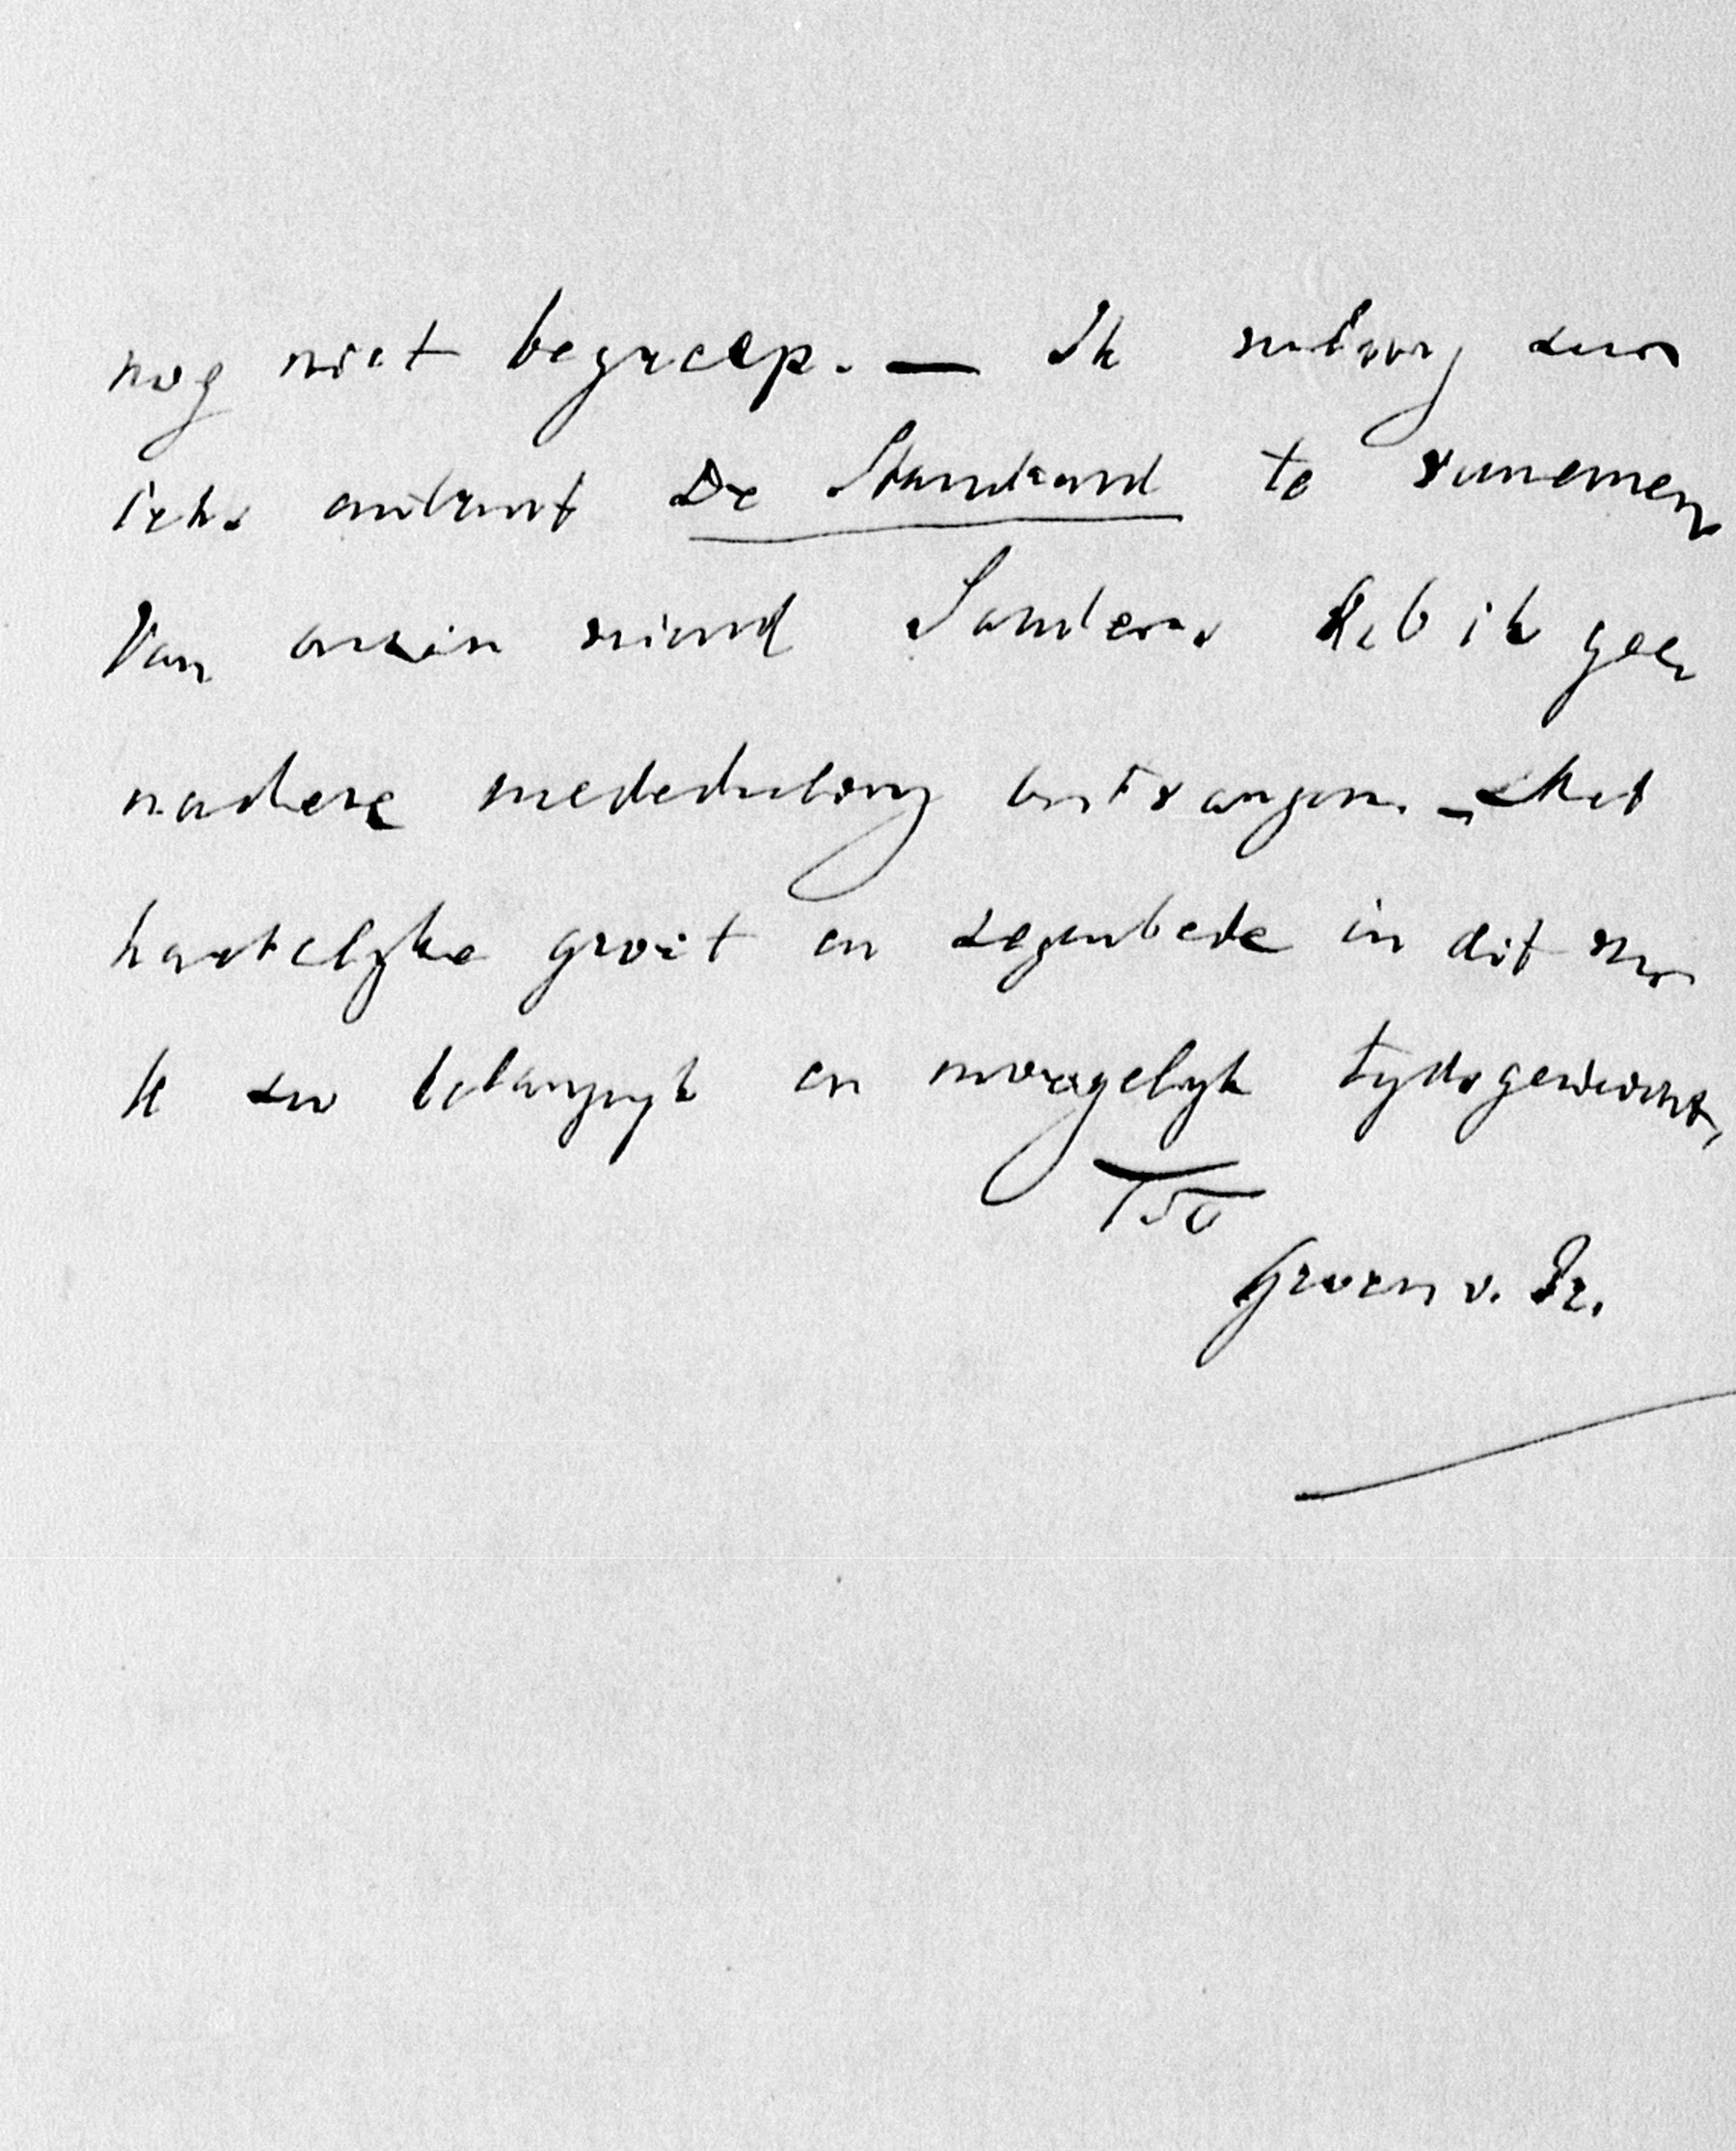 nog niet begreep. — Ik verlang zeer
iets omtrent De Standaard te vernemen
Van onzen vriend Sanders heb ik geen
nadere mededeeling ontvangen. — Met
hartelijke groet en zegenbede in dit
zoo belangrijk en moeyelyk tydsgewricht,
TT
Groen v. Pr.